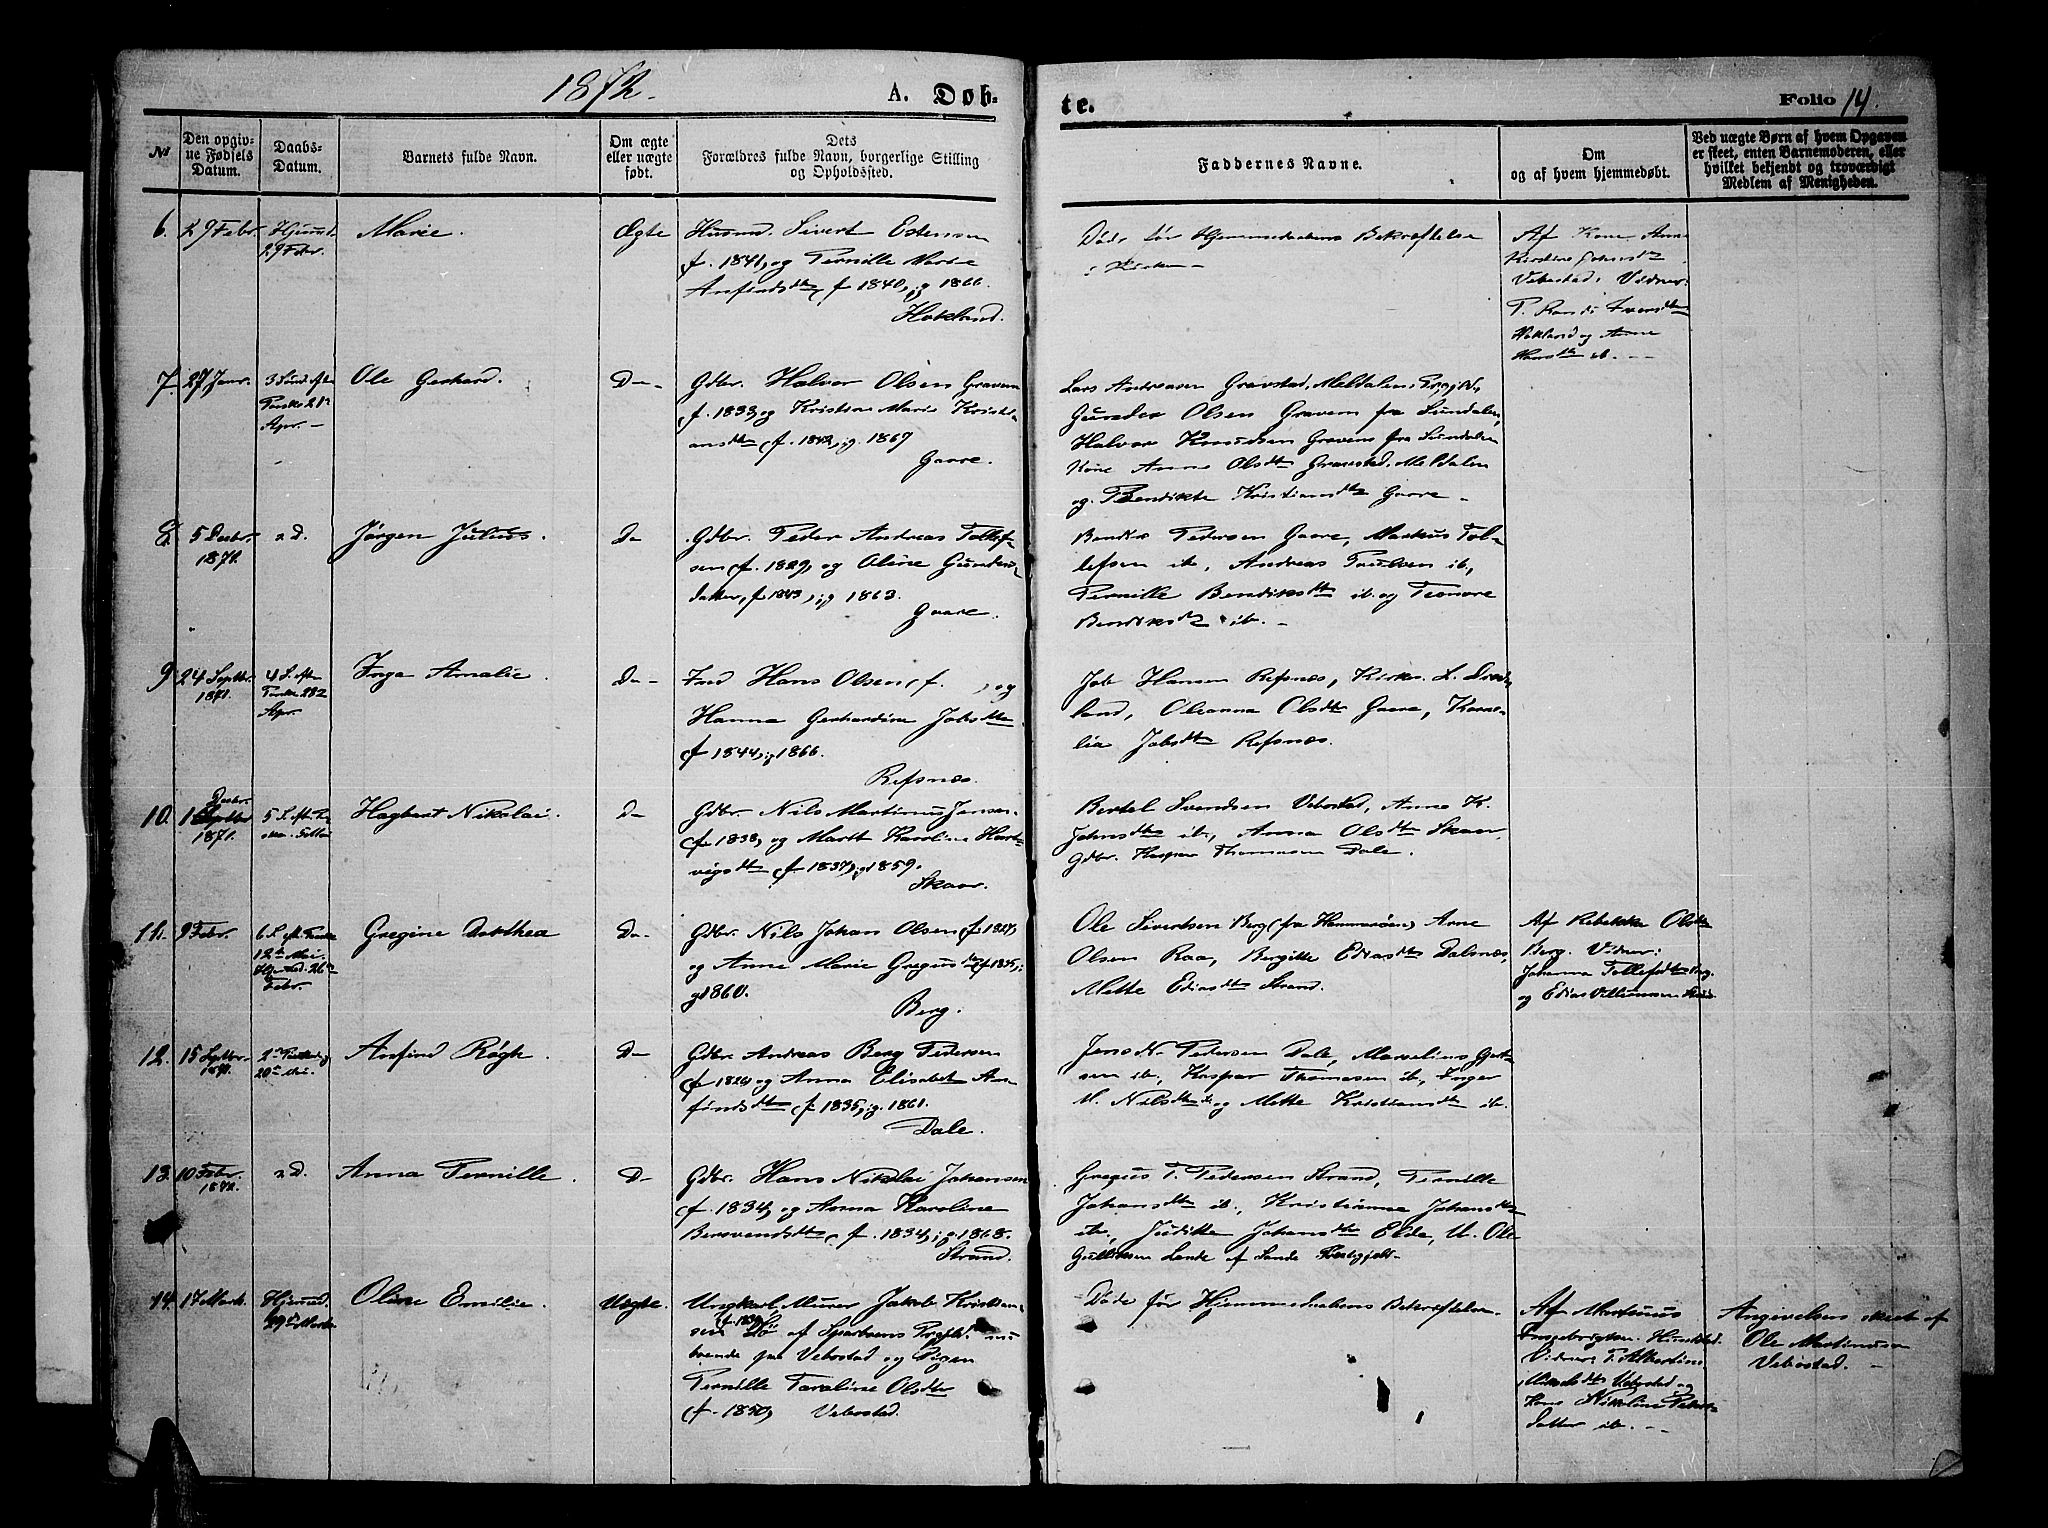 1872.
A. Døb-
te.
Folio 14.
No
Den opgiv-
ne Fødsels
Datum.
Daabs-
Datum.
Barnets fulde Navn.
Om ægte
eller uægte
født.
Dets
Forældres fulde Navn, borgerlige Stilling
og Opholdssted.
Faddernes Navne.
Om
og af hvem hjemmedøbt.
Ved uægte Børn af hvem Opgaven
er skeet, enten Barnemoderen, eller
hvilket bekjendt og troværdigt
Medlem af Menigheden.
6. 29 Febr.
29 Febr.
Marie.
Ægte
Husmd. Sivert Estensen
f. 1841, og Pernille Marie
Anfindsdtr, f 1840, ig 1866
Hokland.
Døde før Hjemmedaabens Bekræftelse
i Kirken
Af Kone Anne
Vebostad. Vidner:
7. 27 Janr.
Apr.
Ole Gerhard.
Do
Gdbr. Halvor Olsen Gravem
f. 1833, og Kristine Marie Kristi-
ansdtr f. 1842, ig. 1867
Gaare.
Lars Andreasen Gravstad, Meldalens Prgjld,
Olsen Gravem fra Sundalen,
Halvor Knudsen Gravem fra Sundalen
Kone Anne Olsdtr Meldalen
og Bendikte Kristiansdtr Gaare
8. 5 Decbr.
1871.
s. D.
Jørgen Julius.
Do
Gdbr. Peder Andreas Tollef-
sen f. 1829, og Oline Gunders-
datter, f 1843, ig 1863.
Gaare.
Pedersen Gaare, Markus Tol-
lefsen ib, Andreas Paulsen ib,
Pernille Bendiksdtr ib. og
Bendiksdtr ib.
9. 24 Septbr.
1871.
Apr.
Inga Amalie.
Do
Hans Olsen, f. , og
Hanna Gerhardine Jobsdtr
f 1844, ig 1866.
Refsnæs.
Job Hansen Refsnæs,
Oleanna Olsdtr Gaare, Korne-
lia Jobsdtr Refsnæs.
10. 1
Decbr.
1871.
Hagbart Nikolai.
Do
Gdbr. Nils Martinus Jensen
f 1838, og Marit Karoline Hart-
vigsdtr f 1837, ig 1859.
Skaar.
Bertel Svendsen Vebostad, Anne K.
Johnsdtr ib., Anna Olsdtr Skaar,
Gdbr. Kaspar Thomasen Dale.
11. 9 Febr.
12te Mai.
Febr.
Gregine Dorthea
Do
Gdbr. Nils Johan Olsen f. 1827,
og Anne Marie Gregusdtr f 1835,
ig 1860.
Berg.
Ole Sivertsen Berg (fra Hammerøen) Arne
Olsen Raa, Bergitte Ediasdtr Dalsnæs,
Mette Ediasdtr Strand.
Af Rebekka Olsdtr
Berg. Vidner:
Johanna Tollefsdtr Berg.
og Edias Villumsen
12. 15 Septbr.
1871.
20de Mai.
Anfind Røgh.
Do
Gdbr. Andreas Berg Pedersen
f 1824 og Anna Elisabet An-
findsdtr f. 1835, ig. 1861.
Dale.
Jens N. Pedersen Dale,
ib, Kaspar Thomasen ib, Inger
M. Nilsdtr ib og Mette Kristiansdtr ib.
13. 10 Febr.
1872.
s. D.
Anna Pernille.
Do
Gdbr. Hans Nikolai Johansen
f. 1834, og Anna Karoline
f. 1834, ig. 1868.
Strand.
Gregus P. Pedersen Strand, Pernille
Johansdtr ib., Kristianna Johansdtr
ib, Judithe Johansdtr Elde, U. Ole
Gulliksen af Sande Prestgjeld.
14. 17 Marts.
Hjemmed.
29de Marts
Oline Emilie.
Uægte.
Ungkarl, Murer Jakob Kristian-
sen f. 1839 af Sparboens Prgjld. nu
boende paa Vebostad og Pigen
Pernille Taraline Olsdtr
f. 1850, Vebostad.
Døde før Hjemmedaabens Bekræftelse.
Af Martinus
Ingebrigtsen
Vidner: P. Albertine
Vebostad og
Kone Nikoline Peders-
datter ib.
Angivelsen skeet af
Ole Martinusen
Vebostad.